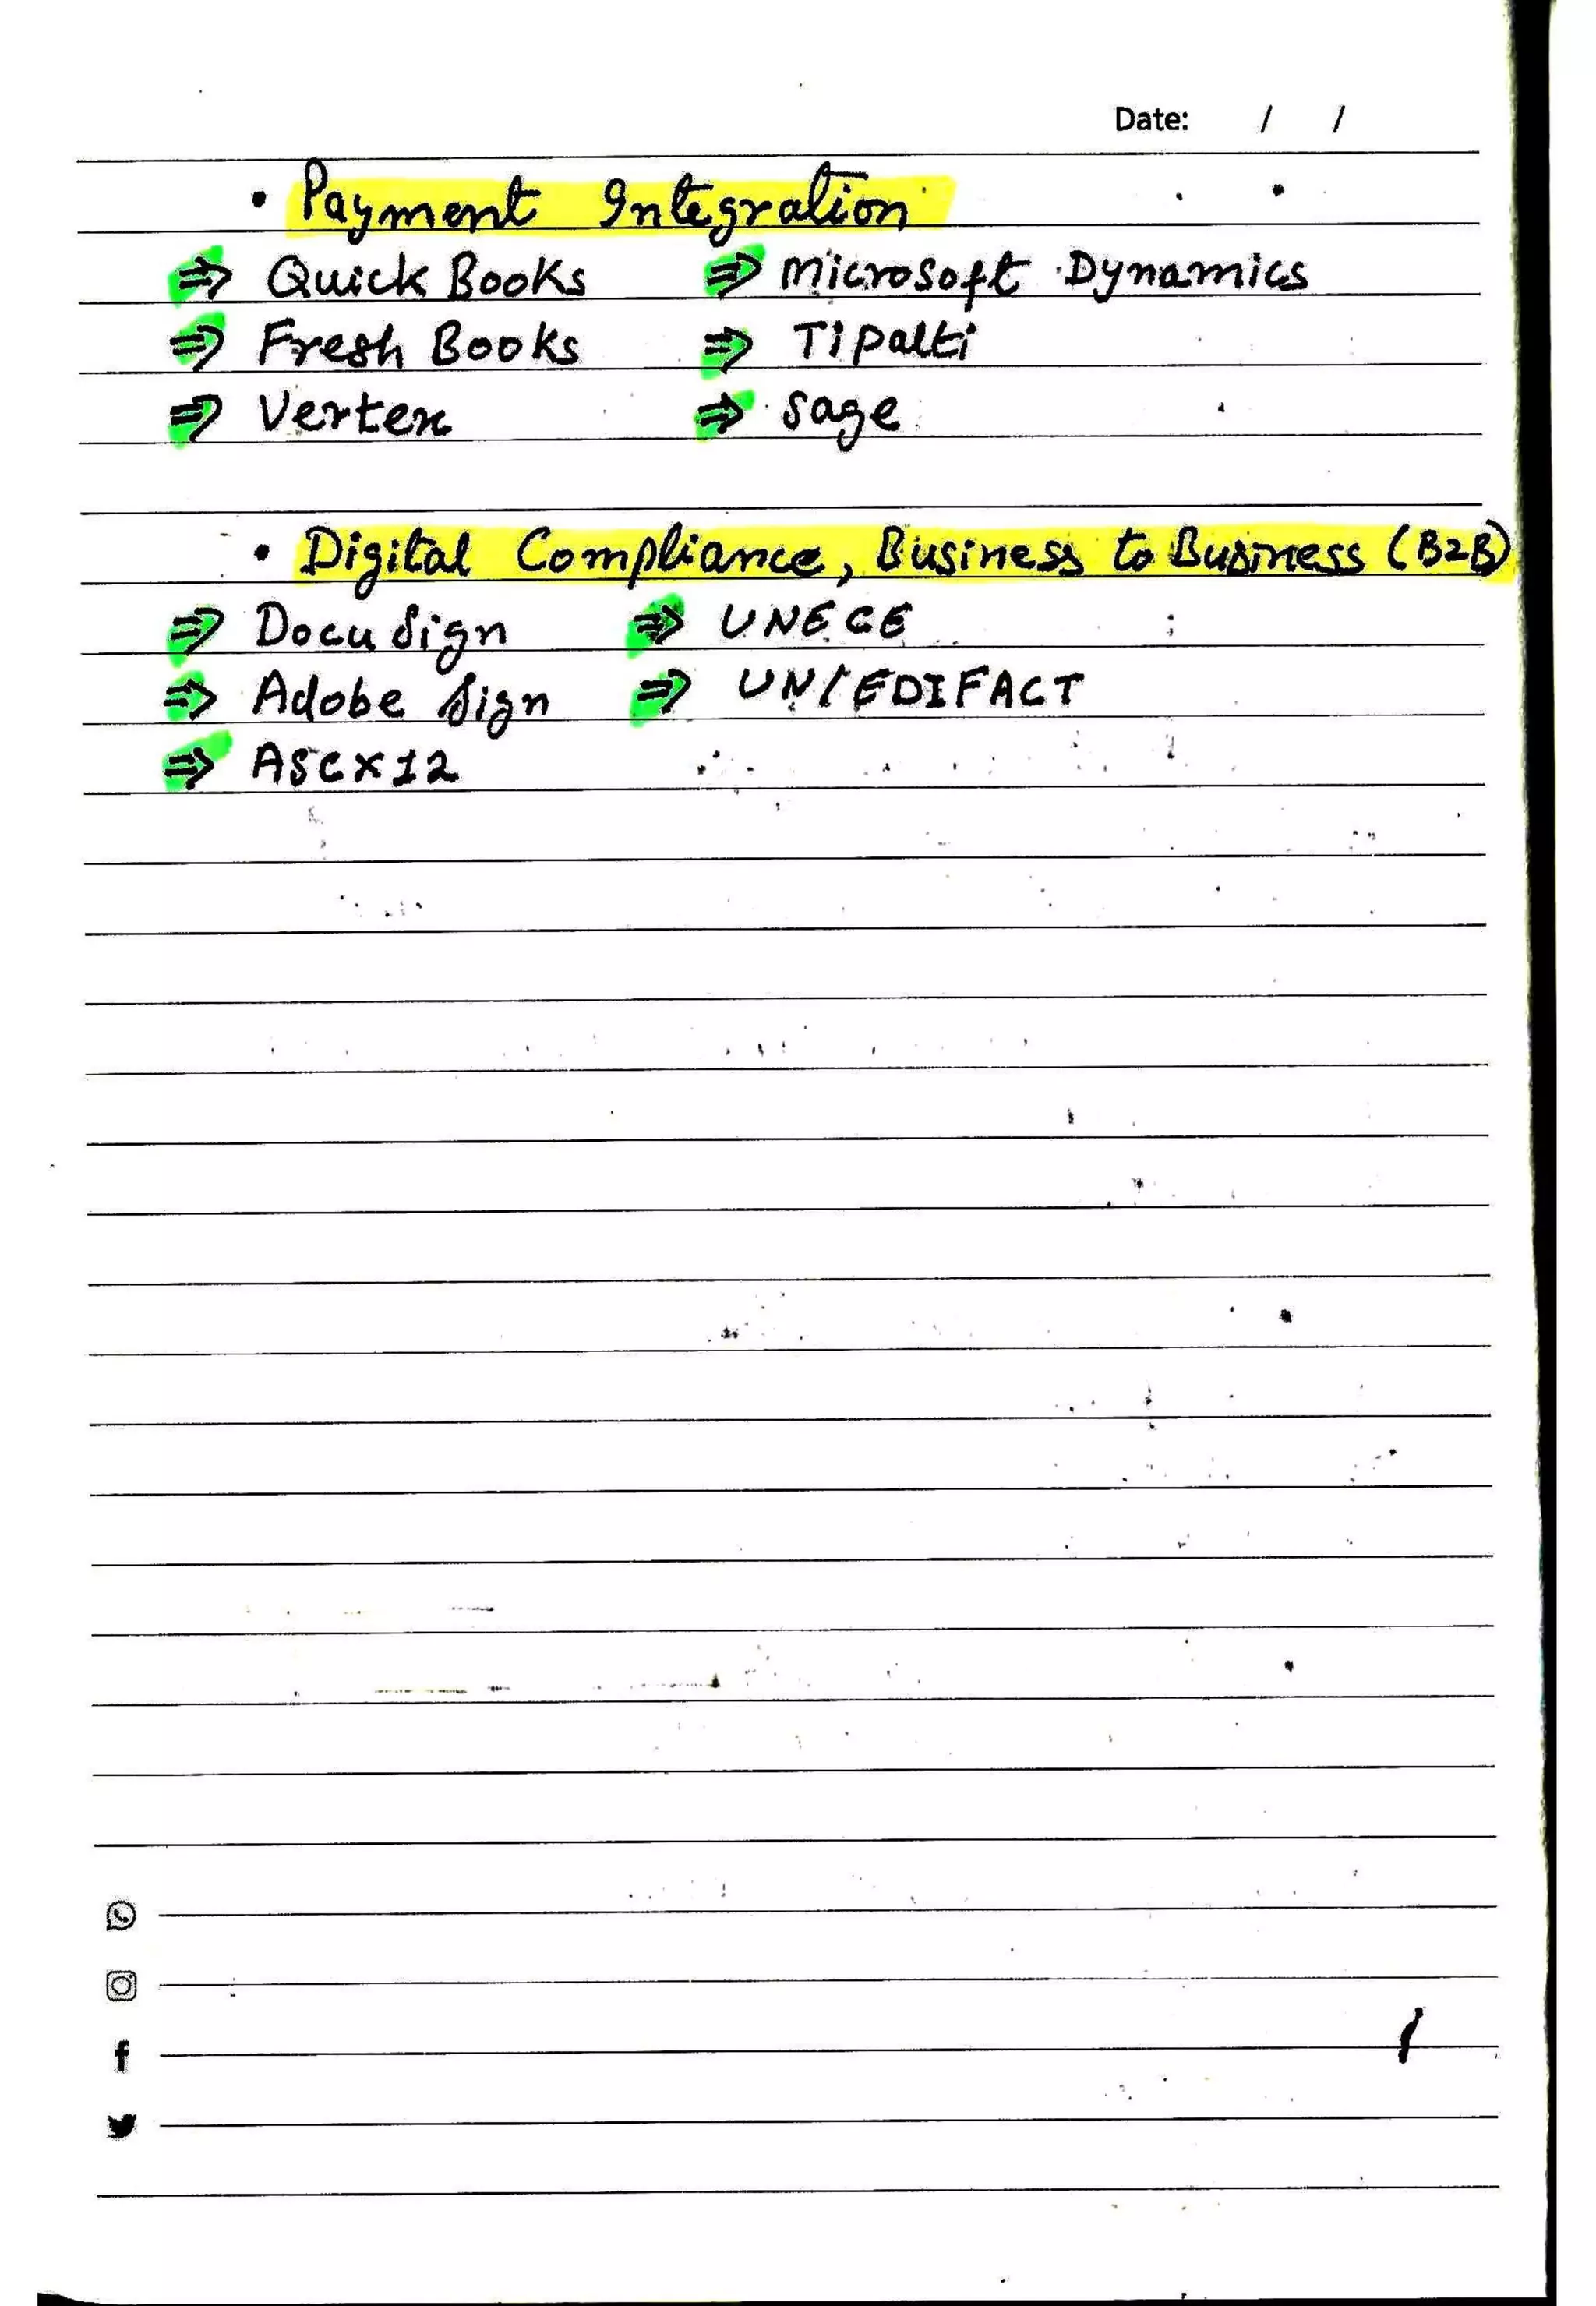 Date: / /
• Payment Integration
⇒ Quick Books ⇒ Microsoft Dynamics
⇒ Fresh Books ⇒ Tipalti
⇒ Vertex ⇒ Sage
• Digital Compliance, Business to Business (B2B)
⇒ Docu Sign ⇒ UNECE
⇒ Adobe Sign ⇒ UN/EDIFACT
⇒ ASCX12